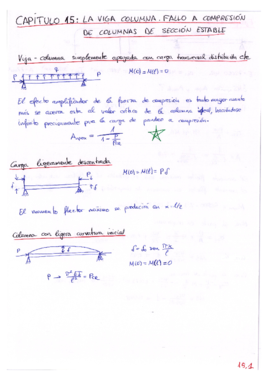 CAPÍTULO 15: LA VIGA COLUMNA. FALLO A COMPRESIÓN
DE COLUMNAS DE SECCIÓN ESTABLE
Viga - columna simplemente apoyada con carga transversal distribuida cte
P
P
M(0) = M(l) = 0
El efecto amplificador de la fuerza de compresión es tanto mayor cuanto
más se acerca esta al valor crítico de la columna
infinito precisamente para la carga de pandeo a compresión.
A = 1 / (1 - P/Pcr)
Carga ligeramente descentrada
P
M(0) = M(l) = Pδ
El momento flector máximo se producirá en x = l/2
Columna con ligera curvatura inicial
P
P
δ = δ0 sen πx/l
M(0) = M(l) = 0
15.1